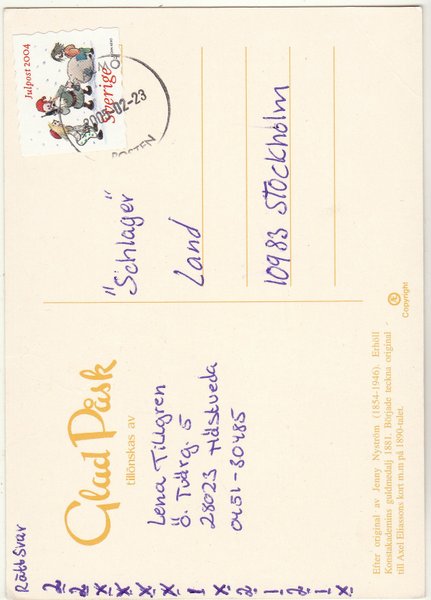 Rätt Svar
2
2
x
x
x
x
1
x
2
1
2
1
x
Glad Påsk
tillönskas av
Lena Tillgren
Ö. Tvärg. 5
28023 Hästveda
0451-30485
Efter original av Jenny Nyström (1854-1946). Erhöll
Konstakademins guldmedalj 1881. Började teckna original
till Axel Eliassons kort m.m på 1890-talet.
Copyright
Julpost 2004
Sverige
2005-02-23
POSTEN
"Schlager"
Land
10983 Stockholm